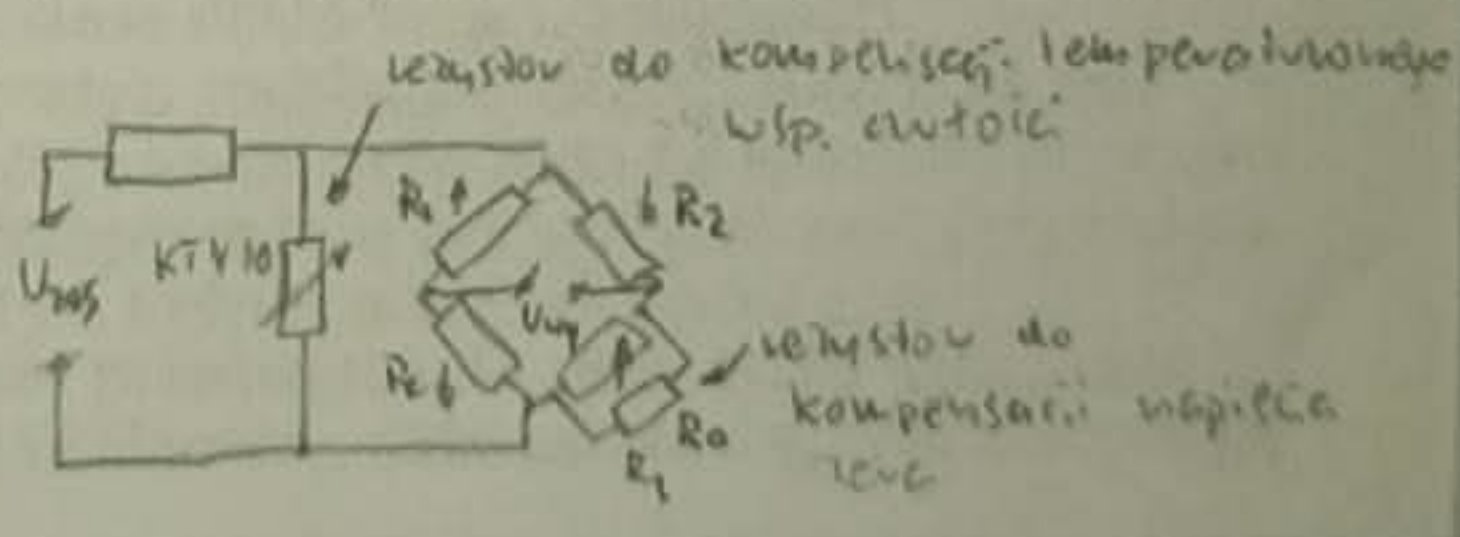 rezystor do kompensacji temperaturowego
wsp. czułości
R1
R2
KTY10
Uzas
Uwy
R2
rezystor do
kompensacji napięcia
zera
R0
R1